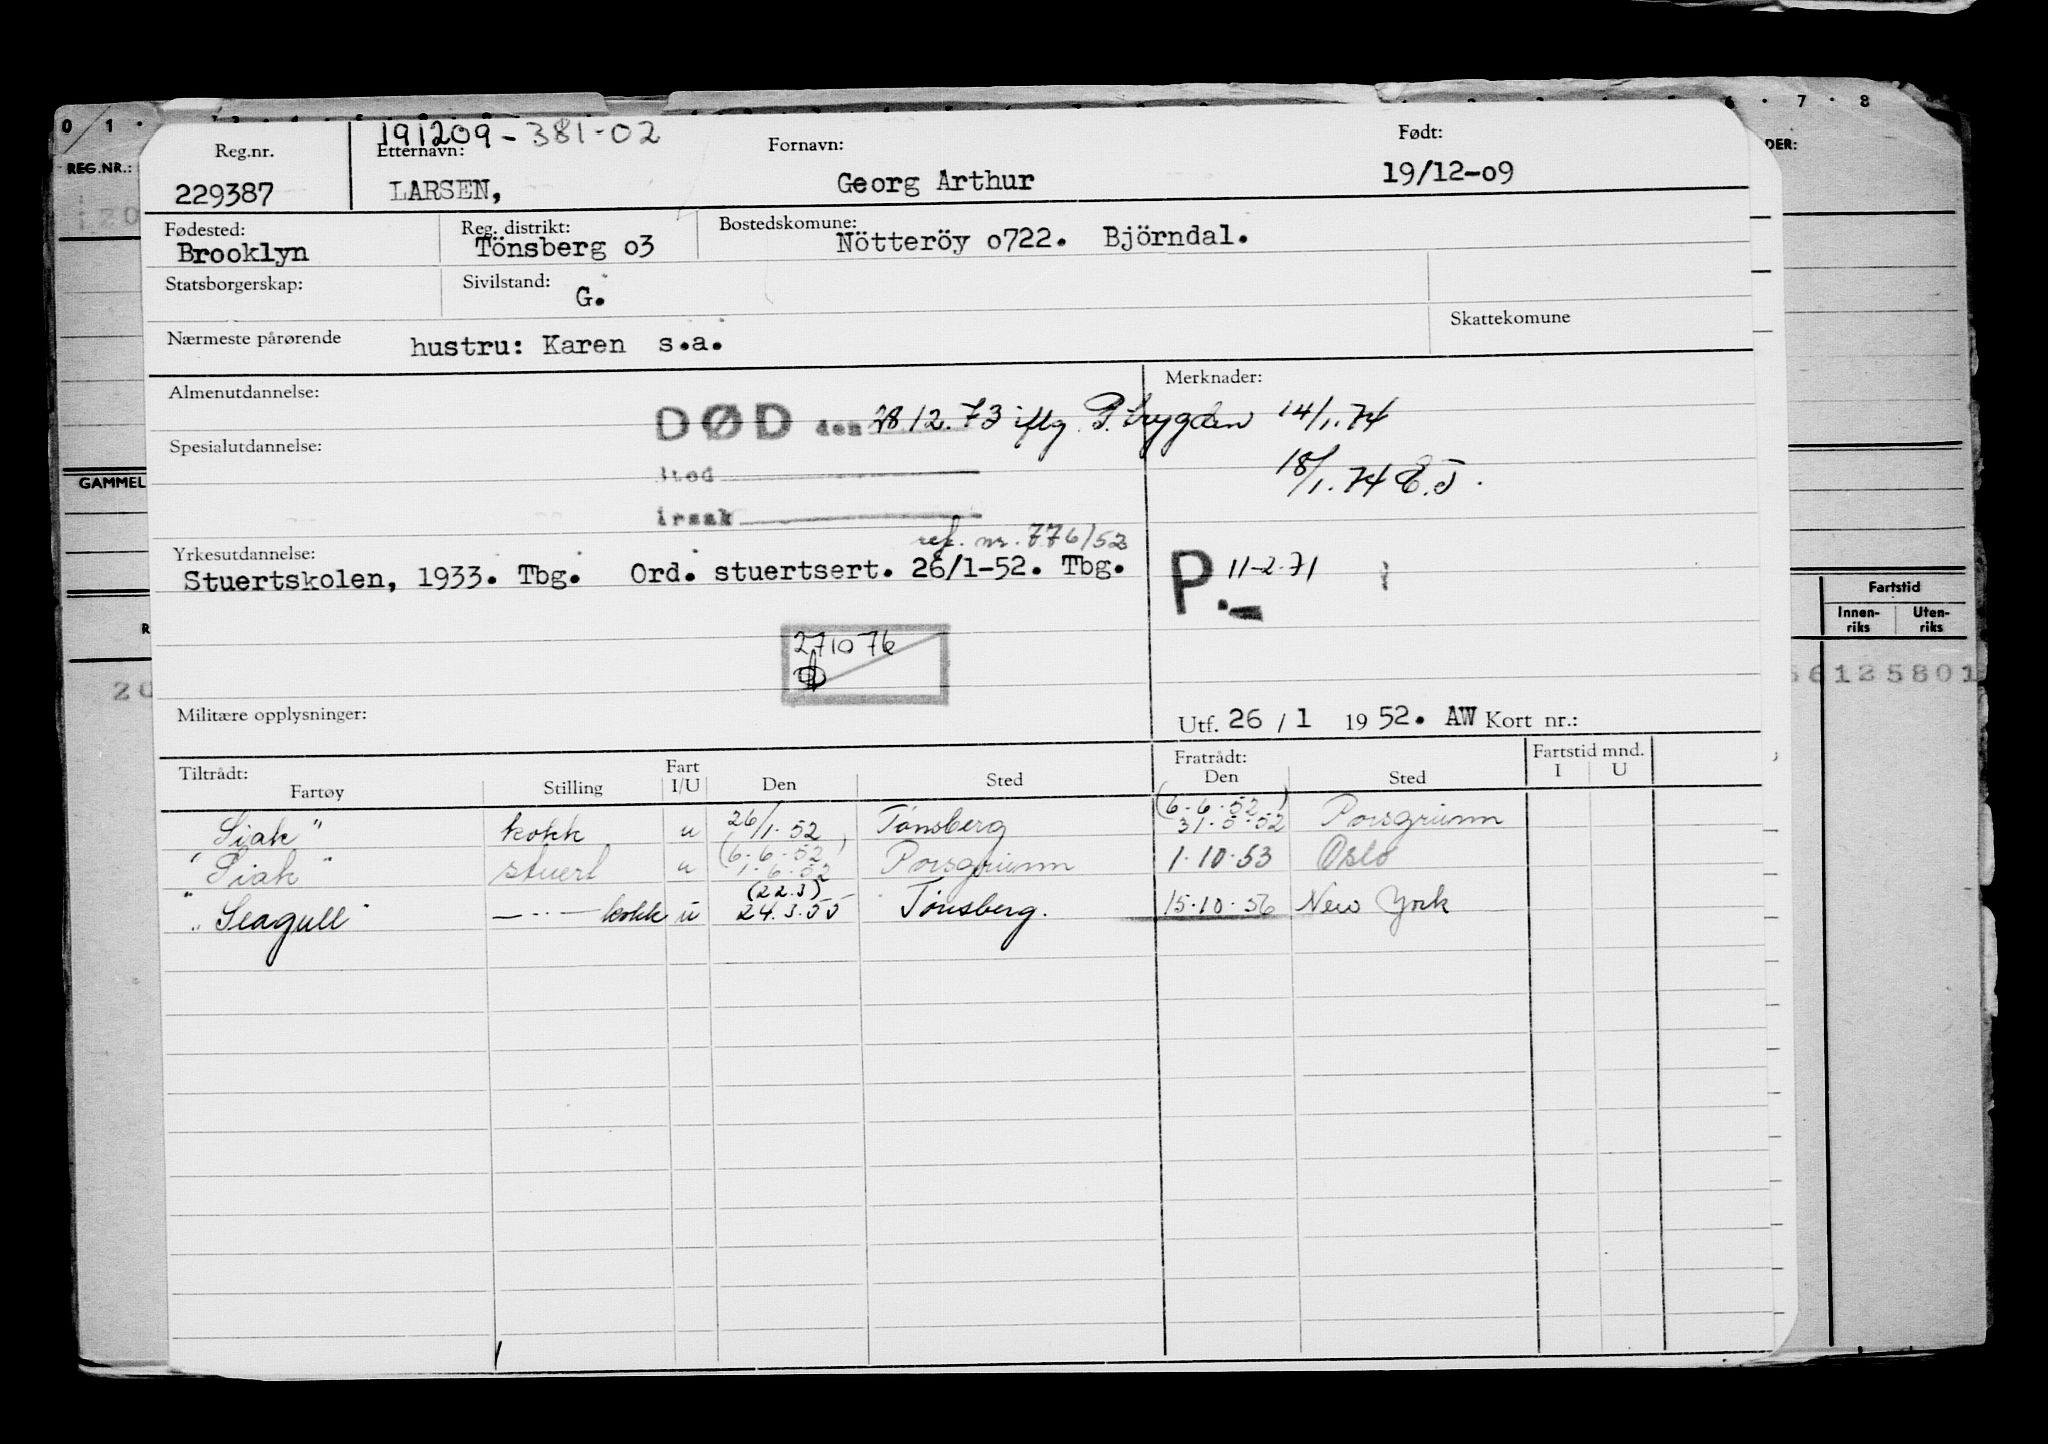 0 1 · 6 · 7 · 8
REG.NR.:
DER:
191209-381-02
Reg.nr. Etternavn: Fornavn: Født:
229387 LARSEN, Georg Arthur 19/12-o9
Fødested: Reg. distrikt: Bostedskomune:
Brooklyn Tönsberg o3 Nötteröy o722. Björndal.
Statsborgerskap: Sivilstand: G.
Nærmeste pårørende hustru: Karen s.a. Skattekomune
Almenutdannelse: Merknader:
DØD den 28 12.73 iflg P.trygden 14/1.74
Spesialutdannelse:
sted 18/1.74 E.J.
GAMMEL
årsak
ref. nr. 776/52
Yrkesutdannelse:
Stuertskolen, 1933. Tbg. Ord. stuertsert. 26/1-52. Tbg. P.- 11-2.71
Fartstid
Innen-riks Uten-riks
271076
20
56125801
Militære opplysninger: Utf. 26 / 1 19 52. AW Kort nr.:
Tiltrådt: Fratrådt: Fartstid mnd.
Fartøy Stilling Fart I/U Den Sted Den Sted I U
(6-6-52)
Siak" kokk u 26/1.52 Tönsberg 31.5.52 Porsgrunn
(6-6-52)
"Siak" stuert u 1.6.52 Porsgrunn 1.10.53 Oslo
(22.3)
"Seagull" —··— kokk u 24.3.55 Tönsberg. 15.10.56 New York